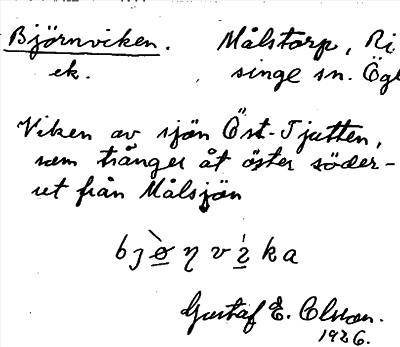 Björnviken. Målstorp, Ri
ek. singe sn. Ögl
Viken av sjön Öst-Tjutten,
som tränger åt öster söder-
ut från Målsjön
bjὸ̱ η v i̱ ka
Gustaf E. Olsson.
1926.